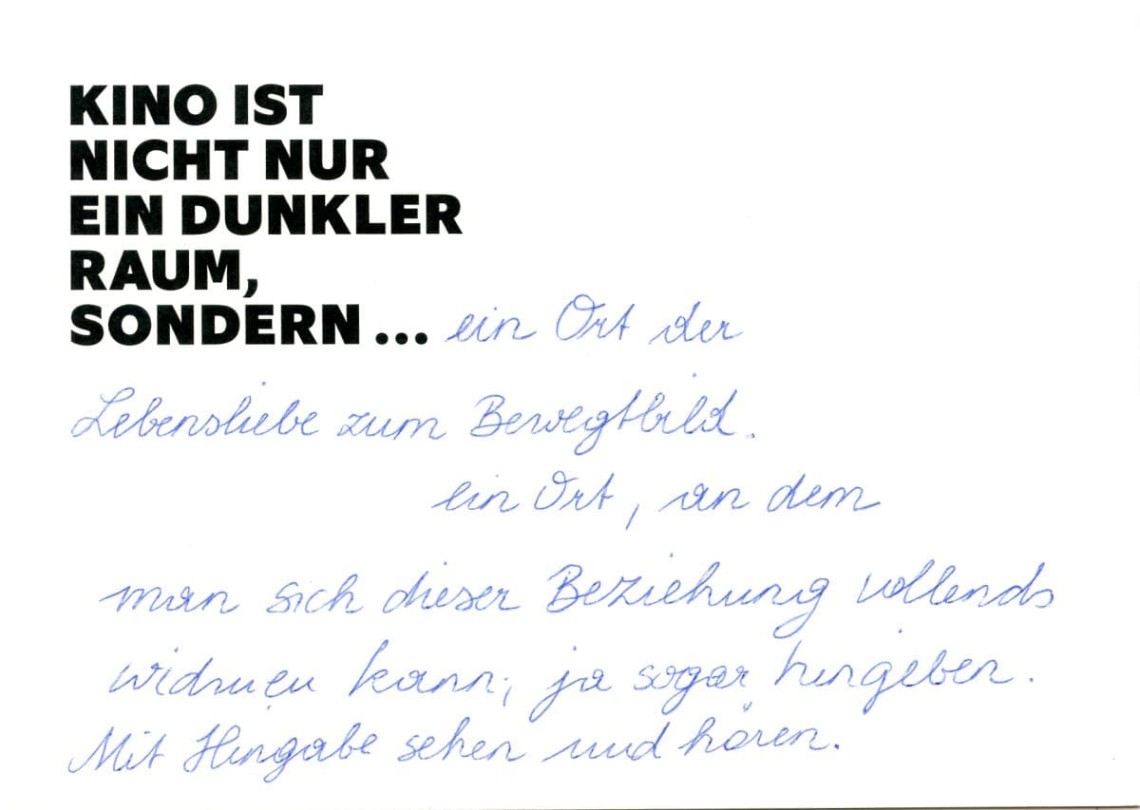 KINO IST
NICHT NUR
EIN DUNKLER
RAUM,
SONDERN ... ein Ort der
Lebensliebe zum Bewegtbild.
ein Ort, an dem
man sich dieser Beziehung vollends
widmen kann, ja sogar hingeben.
Mit Hingabe sehen und hören.